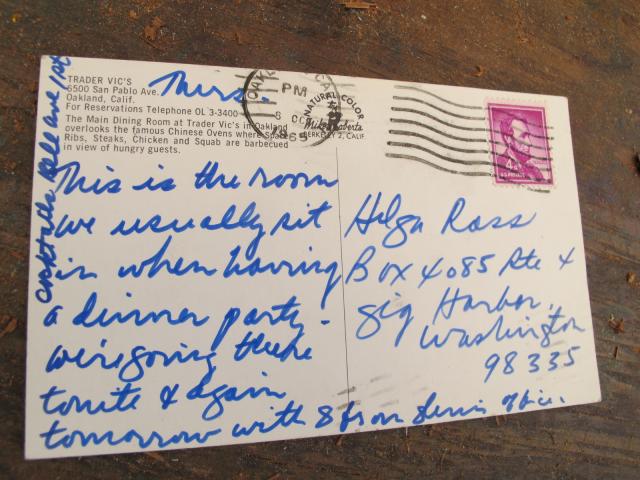 TRADER VIC'S
6500 San Pablo Ave.
Oakland, Calif.
For Reservations Telephone OL 3-3400
The Main Dining Room at Trader Vic's in Oakland
overlooks the famous Chinese Ovens where Spare
Ribs, Steaks, Chicken and Squab are barbecued
in view of hungry guests.
Thurs.
OAKL CA
PM
1965
NATURAL COLOR
Mike Roberts
BERKELEY 2, CALIF.
4¢
U.S. POSTAGE
This is the room
we usually sit
in when having
a dinner party -
we're going there
tonite & again
tomorrow with 8 from office.
cocktails are 1st
Helga Ross
Box 4085 Rte 4
Gig Harbor,
Washington
98335